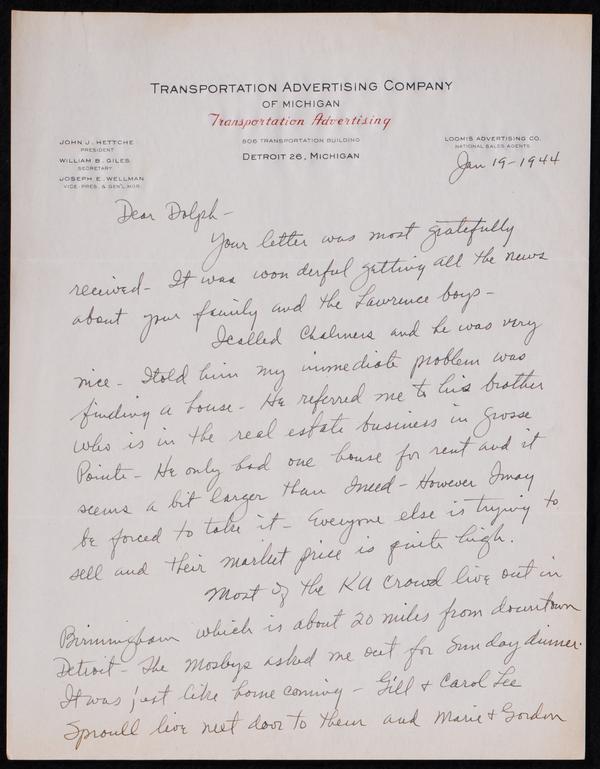 TRANSPORTATION ADVERTISING COMPANY
OF MICHIGAN
Transportation Advertising
806 TRANSPORTATION BUILDING
DETROIT 26, MICHIGAN
JOHN J. HETTCHE
PRESIDENT
WILLIAM B. GILES
SECRETARY
JOSEPH E. WELLMAN
VICE-PRES. & GEN'L MGR.
LOOMIS ADVERTISING CO.
NATIONAL SALES AGENTS
Jan 19-1944
Dear Dolph-
Your letter was most gratefully
received - It was wonderful getting all the news
about your family and the Lawrence boys -
I called Chalmers and he was very
nice - I told him my immediate problem was
finding a house - He referred me to his brother
who is in the real estate business in Grosse
Pointe - He only had one house for rent and it
seems a bit larger than I need - However I may
be forced to take it - Everyone else is trying to
sell and their market price is quite high.
Most of the KA crowd live out in
Birmingham which is about 20 miles from downtown
Detroit - The Mosbys asked me out for Sunday dinner.
It was just like home coming - Gill & Carol Lee
Sproull live next door to them and Marie & Gordon